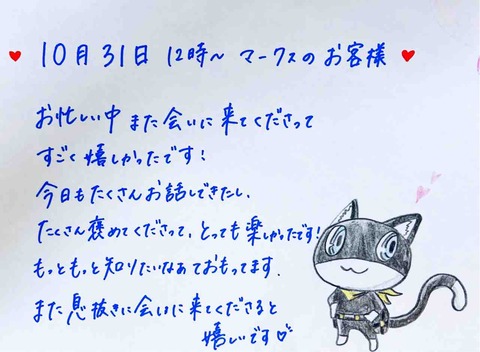 ♥ 10月31日 12時〜 マークスのお客様 ♥
お忙しい中 また会いに来てくださって
すごく嬉しかったです!
今日もたくさんお話しできたし、
たくさん褒めてくださって、とっても楽しかったです!
もっともっと知りたいなあておもってます.
また息抜きに会いに来てくださると
嬉しいです♡